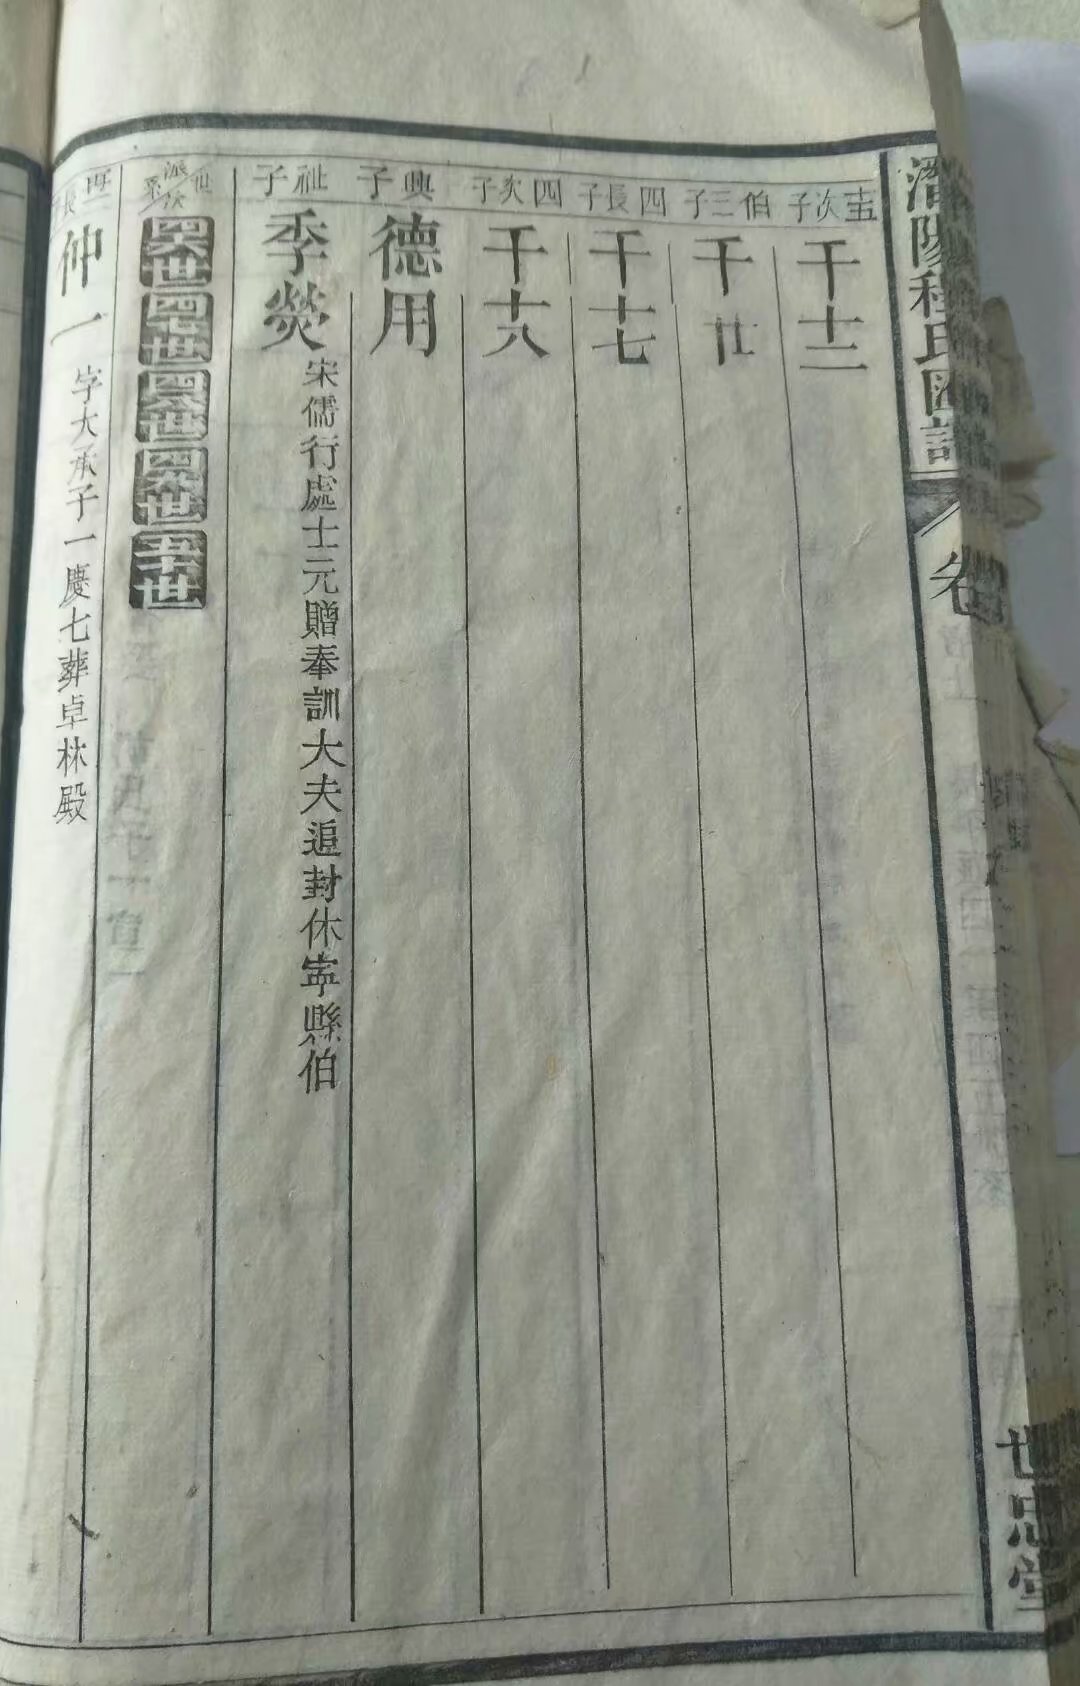 濳陽程氏匯譜
卷
世忠堂
次子
千十二
伯三子
千廿
四長子
千十七
四次子
千十八
興子
德用
祉子
季熒
宋儒行處士元贈奉訓大夫追封休寧縣伯
世派系
四六世
四七世
四八世
四九世
五十世
再一長
仲一
字大承子一慶七葬卓林殿